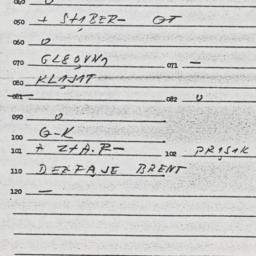 050 + STABER- OT
060 0
070 GLEQVNA 071 -
080 KLAJAT
081 082 0
090 0
100 Q-K
101 + ZTA.R- 102 PRJSAK
110 DEZFAJE BRENT
120 -